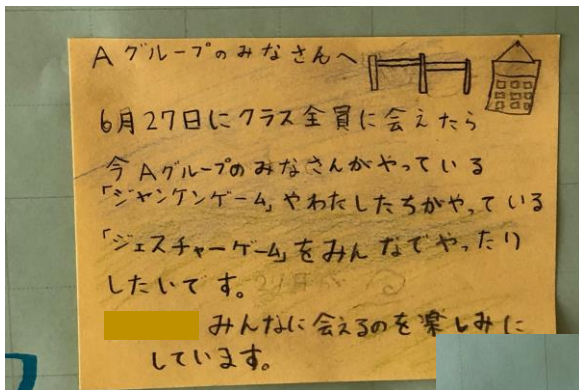 Aグループのみなさんへ
6月27日にクラス全員に会えたら
今Aグループのみなさんがやっている
「ジャンケンゲーム」やわたしたちがやっている
「ジェスチャーゲーム」をみんなでやったり
したいです。
みんなに会えるのを楽しみに
しています。